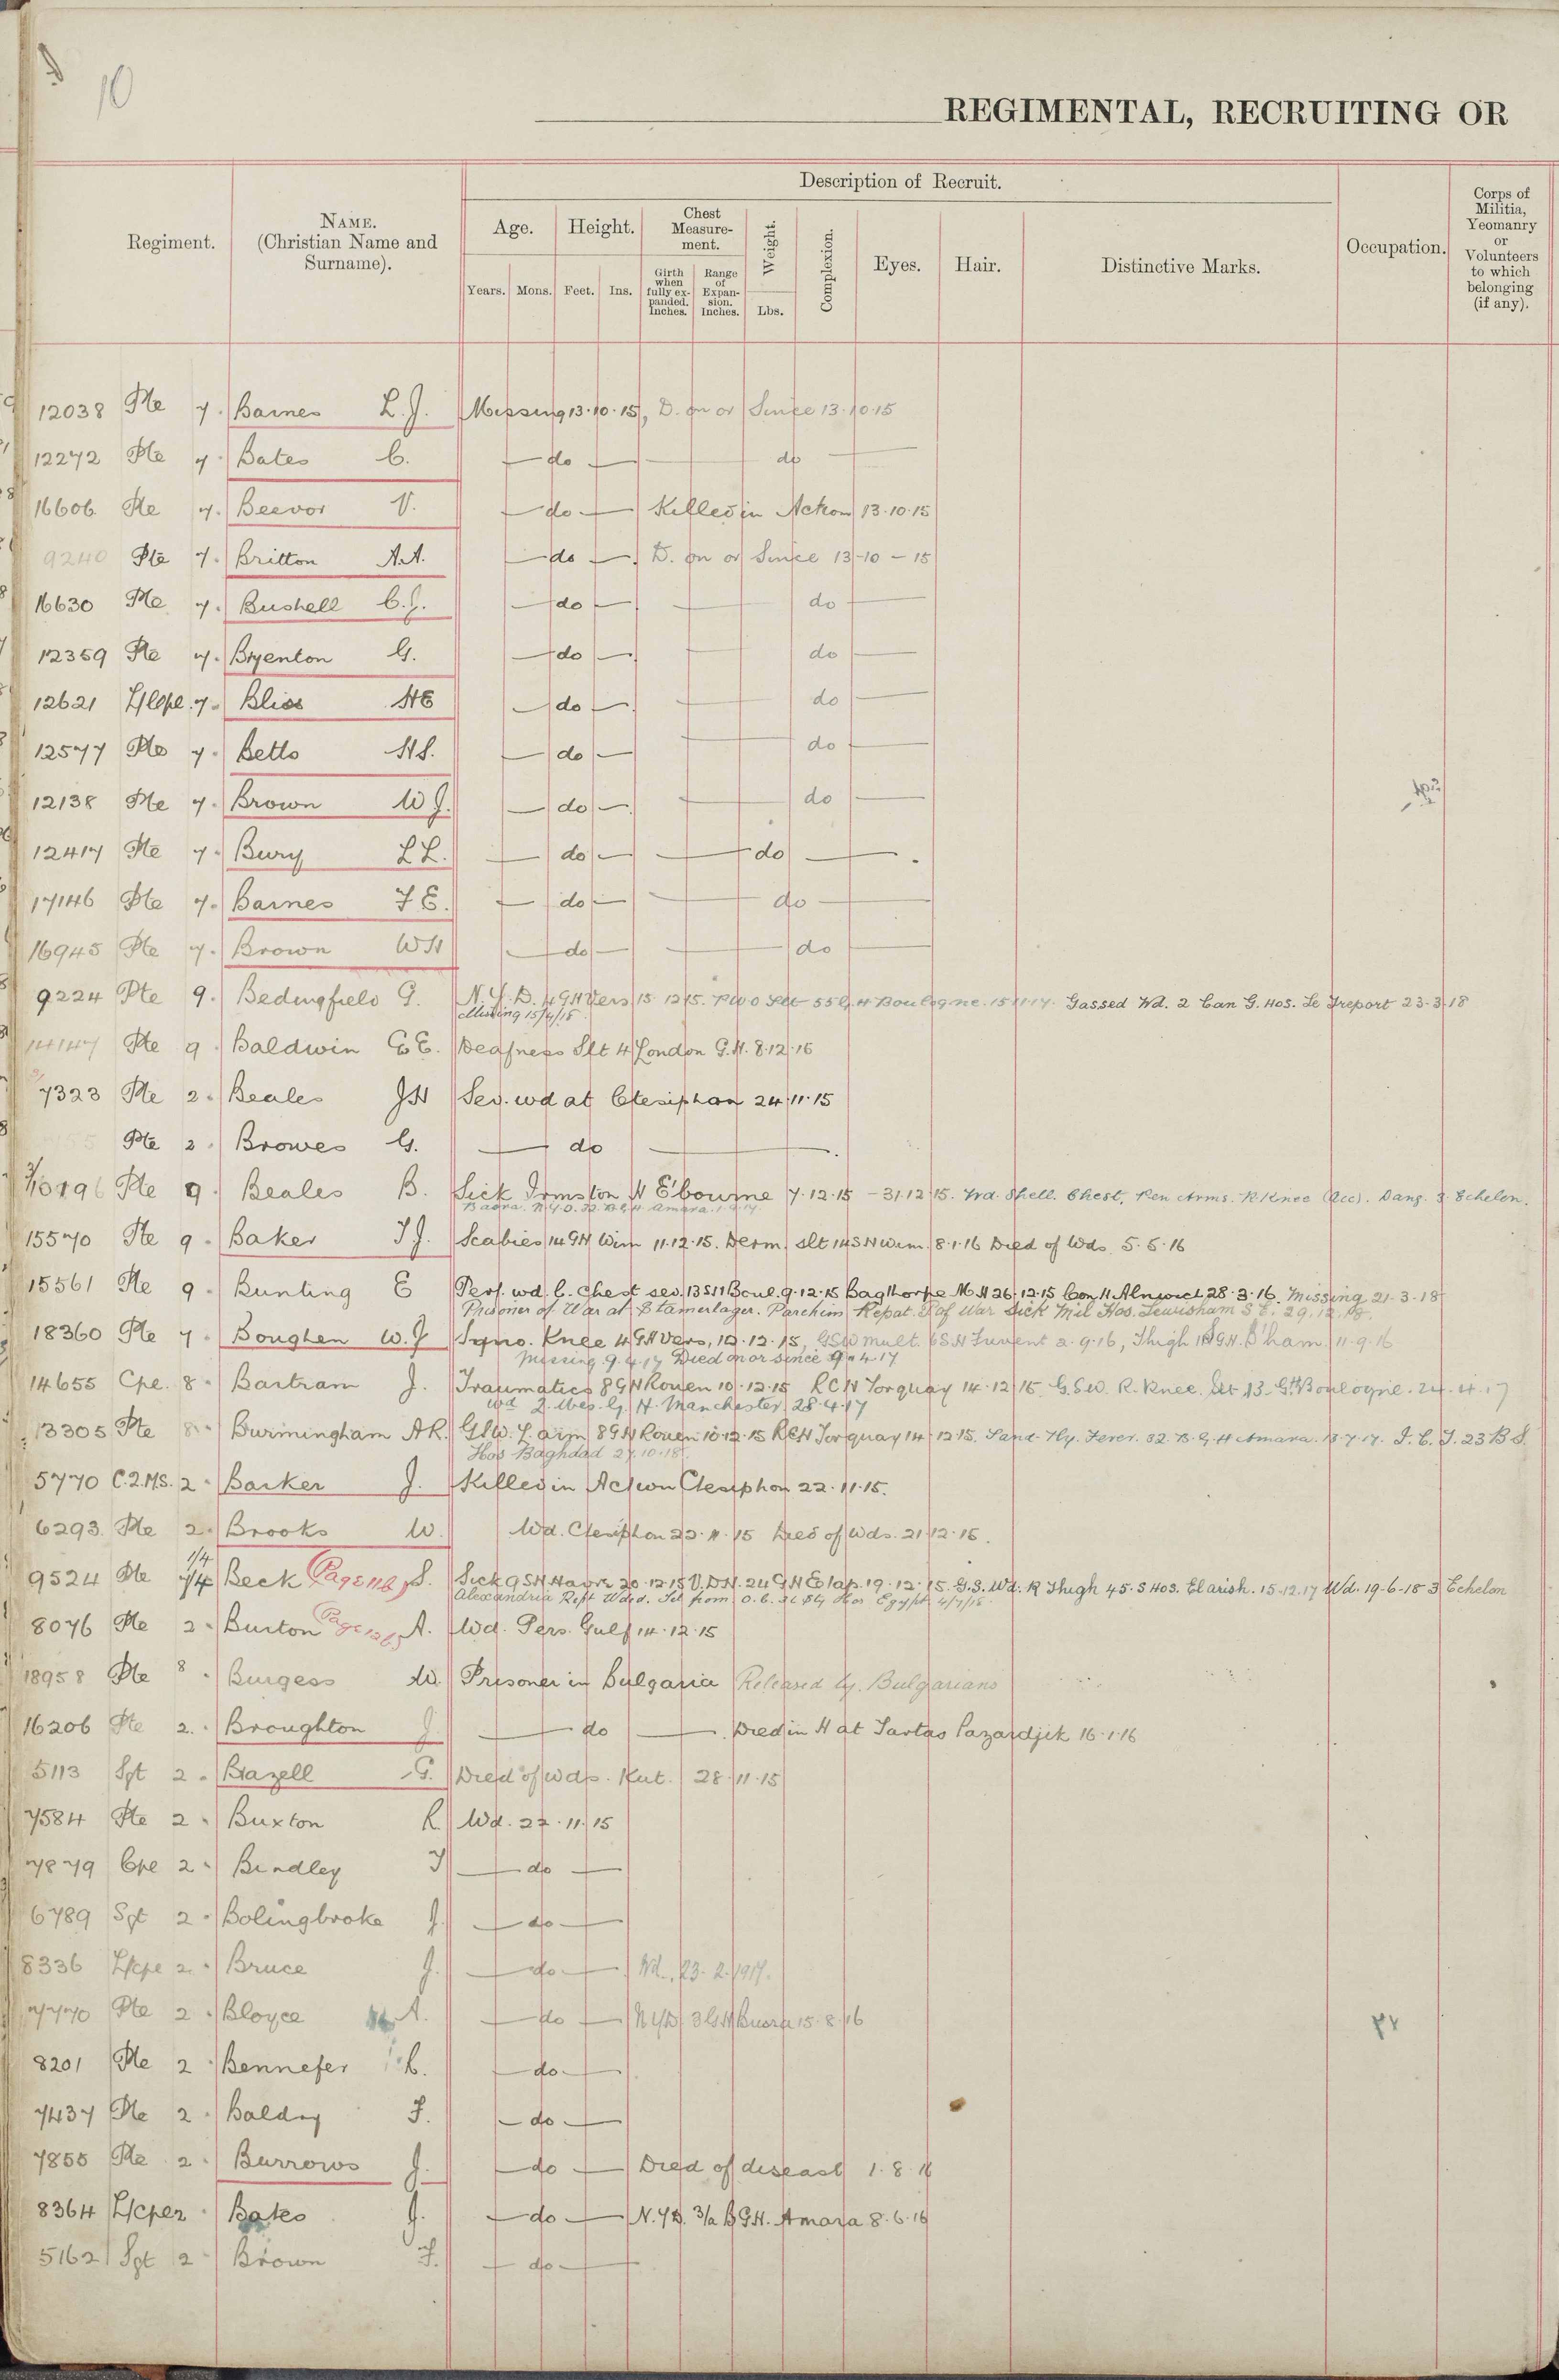 10
REGIMENTAL, RECRUITING OR
Description of Recruit.
Regiment.
NAME.
(Christian Name and
Surname).
Age.
Height.
Chest
Measure-
ment.
Weight.
Complexion.
Eyes.
Hair.
Distinctive Marks.
Occupation.
Corps of
Militia,
Yeomanry
or
Volunteers
to which
belonging
(if any).
Years.
Mons.
Feet.
Ins.
Girth
when
fully ex-
panded.
Inches.
Range
of
Expan-
sion.
Inches.
Lbs.
12038 Pte 7. Barnes L.J. Missing 13.10.15, D. on or Since 13.10.15
12272 Pte 7. Bates C. — do — — do —
16606 Pte 7. Beevor V. — do — Killed in Action 13.10.15
9240 Pte 7. Britton A.A. — do — D. on or Since 13-10-15
16630 Pte 7. Bushell C.J. — do — — do —
12359 Pte 7. Bryenton G. — do — — do —
12621 L/Cpl. 7. Bliss HE — do — — do —
12577 Pte 7. Betts H.S. — do — — do —
12138 Pte 7. Brown W J. — do — — do —
12417 Pte 7. Bury L L. — do — — do —
17146 Pte 7. Barnes F E. — do — — do —
16945 Pte 7. Brown WH — do — — do —
9224 Pte 9. Bedingfield G. N.Y.D. 4 GH Vers 15 12 15. Slt 55 G.H Boulogne. 15.11.17. Gassed Wd. 2 Can G. Hos. Le Treport 23-3-18
Missing 15/4/18.
14147 Pte 9. Baldwin G E. Deafness Slt 4 London G.H. 8.12.15
7323 Pte 2. Beales JH Sev. wd at Ctesiphon 24.11.15
Pte 2. Browes G. — do —
3/10196 Pte 9. Beales B. Sick Irmston H E'bourne 7.12.15 - 31.12.15. Wd. Shell. Chest, Arms. R Knee (acc). Dang. 3 Echelon.
Basra. N.Y.D. 32. B.G.H. Amara. 1.9.17.
15570 Pte 9. Baker T J. Scabies 14 GH Wim 11.12.15. Derm. slt 14 S H Wim. 8.1.16 Died of Wds. 5.5.16
15561 Pte 9. Bunting E Perf. wd. C. Chest sev. 13 SH Boul. 9.12.15 Bagthorpe M H 26.12.15 Con H Alnwick 28.3.16. Missing 21-3-18
Prisoner of War at Stamerlager. Parchim Repat. P of War Sick Mil Hos. Lewisham S E. 29.12.18.
18360 Pte 7. Boughen W.J Syno. Knee 4 GH Vers, 10.12.15, GSW mult. 6 S H Fruvent 2.9.16, Thigh 1 S G.H. B'ham 11.9.16
Missing 9.4.17 Died on or since 9.4.17
14655 Cpl. 8. Bartram J. Traumatics 8 GH Rouen 10.12.15 RCH Torquay 14.12.15 G.S.W. R. Knee. Slt 13. GH Boulogne. 24.4.17
wd 2. Wes. G. H. Manchester 28.4.17
13305 Pte 8. Burmingham AR. GSW. F. arm 8 GH Rouen 10.12.15 RCH Torquay 14.12.15. Sand-fly. Fever. 32. B.G.H Amara. 13.7.17. I.C.T. 23 B S.
Hos Baghdad 27.10.18.
5770 C.Q.M.S. 2. Barker J. Killed in Action Ctesiphon 22.11.15.
6293 Pte 2. Brooks W. Wd. Ctesiphon 22.11.15 Died of Wds. 21.12.15.
9524 Pte 1/4 Beck (Page 116) S. Sick 9 SH Havre 20.12.15 V.D.H. 24 GH Etap. 19.12.15. G.S. Wd. R Thigh 45. S Hos. El Arish. 15.12.17 Wd. 19-6-18 3 Echelon
Alexandria Rept Wded. Tel from O.C. Hos Egypt 4/7/18
8076 Pte 2. Burton (Page 126) A. Wd. Pers. Gulf 14.12.15
18958 Pte 8. Burgess W. Prisoner in Bulgaria Released by Bulgarians
16206 Pte 2. Broughton J. — do — Died in H at Tartas Pazardjik 16.1.16
5113 Sgt 2. Brazell G. Died of wds. Kut. 28.11.15
7584 Pte 2. Buxton R Wd. 22.11.15
7879 Cpl 2. Bindley T — do —
6789 Sgt 2. Bolingbroke J. — do —
8336 L/cpl 2. Bruce J. — do — Wd. 23.2.1917.
7770 Pte 2. Bloyce A. — do — NYD 3 GH Busra 15.8.16
8201 Pte 2. Bennefer C. — do —
7437 Pte 2. Baldry F. — do —
7855 Pte 2. Burrows J. — do — Died of disease 1.8.16
8364 L/cpl 2. Bates J. — do — N.Y.D. 3/a B G.H. Amara 8.6.16
5162 Sgt 2. Brown F. — do —